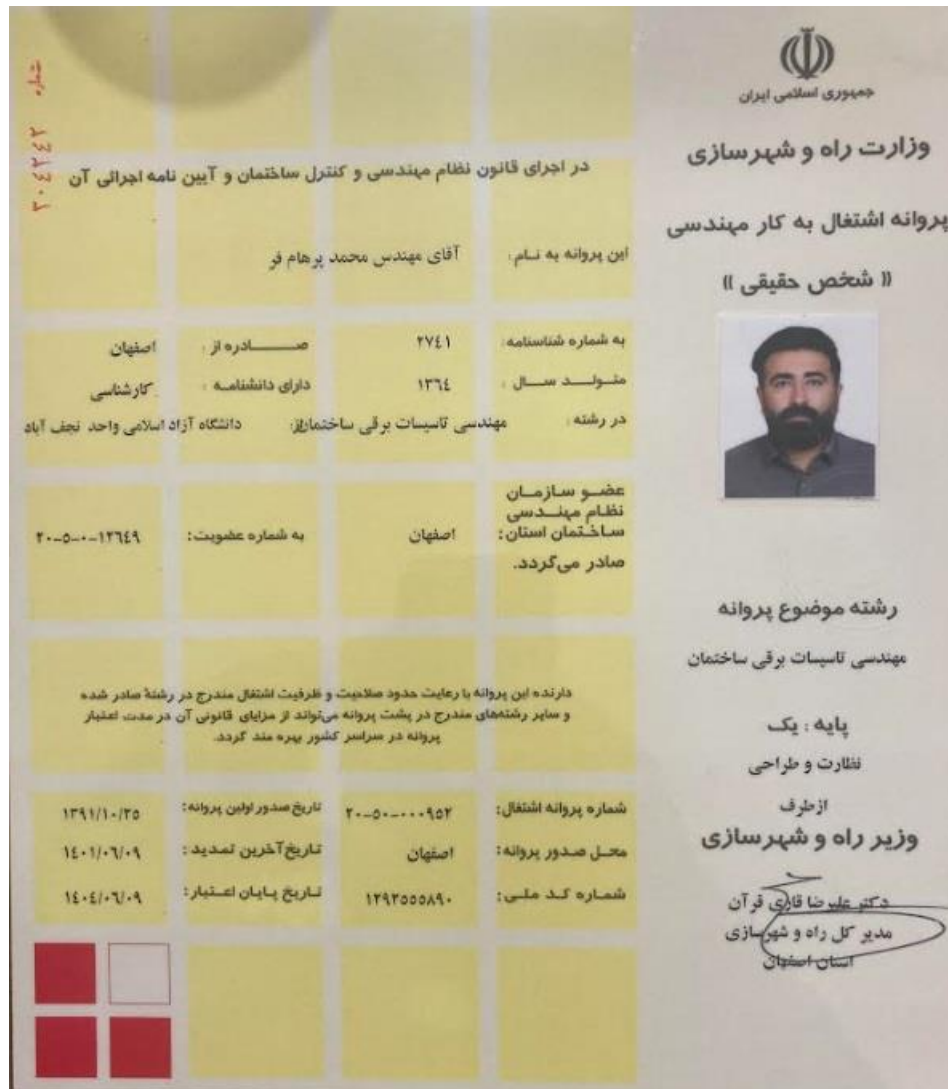 جمهوری اسلامی ایران
وزارت راه و شهرسازی
پروانه اشتغال به کار مهندسی
« شخص حقیقی »
رشته موضوع پروانه
مهندسی تاسیسات برقی ساختمان
پایه : یک
نظارت و طراحی
ازطرف
وزیر راه و شهرسازی
دکتر علیرضا قاری قرآن
مدیر کل راه و شهرسازی
استان اصفهان
شماره ۲۰٤۲٤۲
در اجرای قانون نظام مهندسی و کنترل ساختمان و آیین نامه اجرائی آن
این پروانه به نـام: آقای مهندس محمد پرهام فر
به شماره شناسنامه: ۲۷٤۱ صـــــادره از : اصفهان
متـولـــد ســـال : ۱۳٦٤ دارای دانشنامـه : کارشناسی
در رشته : مهندسی تاسیسات برقی ساختمان از: دانشگاه آزاد اسلامی واحد نجف آباد
عضــو سـازمــان
نظـام مهنــدسی
ساختمان استان: اصفهان به شماره عضویت: ۲۰-۵-۰-۱۲٦٤۹
صادر می‌گردد.
دارنده این پروانه با رعایت حدود صلاحیت و ظرفیت اشتغال مندرج در رشتهٔ صادر شده
و سایر رشته‌های مندرج در پشت پروانه می‌تواند از مزایای قانونی آن در مدت اعتبار
پروانه در سراسر کشور بهره مند گردد.
شماره پروانه اشتغال: ۲۰-۵۰-۰۰۰۹۵۲ تاریخ صدور اولین پروانه: ۱۳۹۱/۱۰/۲۵
محـل صـدور پروانه: اصفهان تـاریخ آخرین تمـدید : ۱٤۰۱/۰٦/۰۹
شمـاره کـد ملـی: ۱۲۹۲۵۵۵۸۹۰ تـاریخ پـایـان اعـتبـار: ۱٤۰٤/۰٦/۰۹